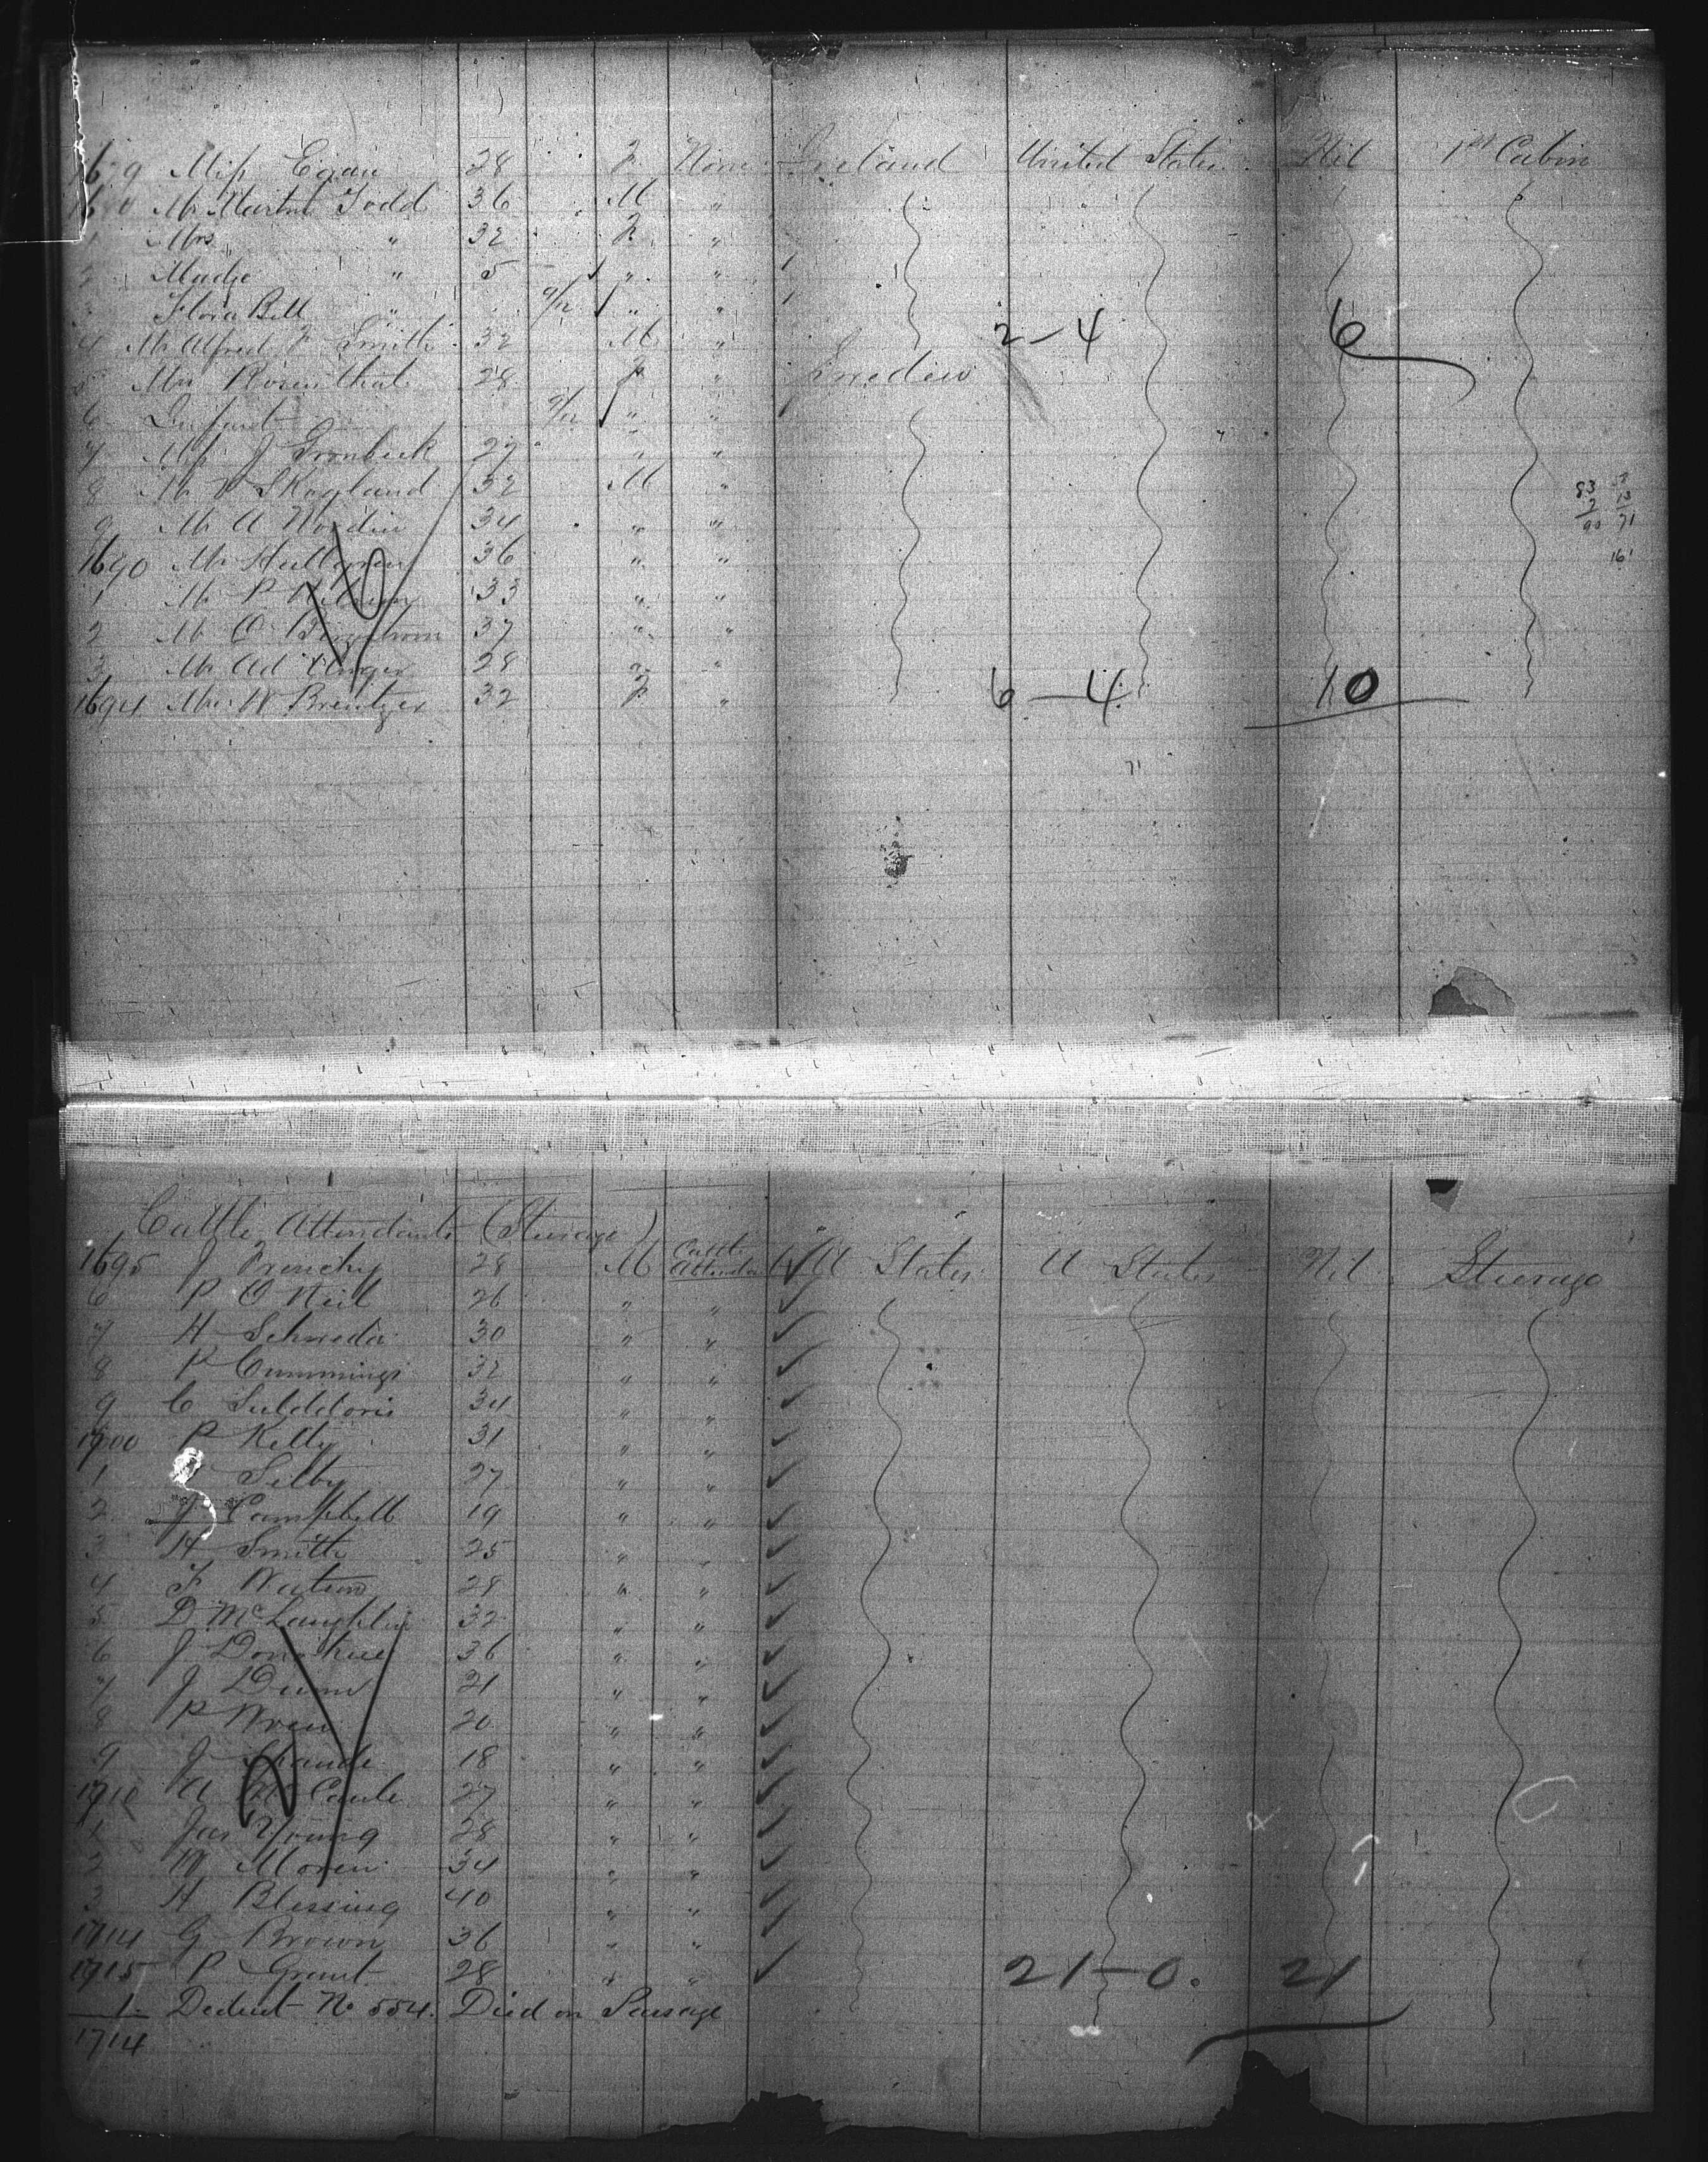 1679 Miss Egan 28 F None Ireland United States Nil 1st Cabin
1680 Mr Martin Todd 36 M "
1 Mrs " 32 F "
2 Madge " 5 " "
3 Flora Bell " 9/12 " "
4 Mr Alfred F Smith 32 M " 2-4 6
5 Mrs Rosenthal 28 F " Sweden
6 Infant 9/12 " "
7 Miss J Gronbeck 27 " "
8 Mr V Skogland 32 M "
9 Mr A Nordin 34 " "
1690 Mr 36 " "
1 Mr P 33 " "
2 Mr O 37 " "
3 Mr Ad Unger 28 " "
1694 Mrs W Brentzer 32 F " 6-4 10
71
83
7
90
13
71
161
Cattle Attendants (Steerage)
1695 J Frenchy 28 M Cattle Attendant U States U States Nil Steerage
6 P O Neil 26 " "
7 H Schroder 30 " "
8 P Cummings 32 " "
9 C 34 " "
1700 P Kelly 31 " "
1 Selby 27 " "
2 J Campbell 19 " "
3 H Smith 25 " "
4 F Watson 28 " "
5 D McLaughlin 32 " "
6 J Donohue 36 " "
7 J Dunn 21 " "
8 P Wren 20 " "
9 J 18 " "
1710 A McCaule 27 " "
1 Jas Young 28 " "
2 M Moren 34 " "
3 H Blessing 40 " "
1714 G Brown 36 " "
1715 P Grant 28 " " 21-0. 21
1 Deduct No 554. Died on Passage
1714